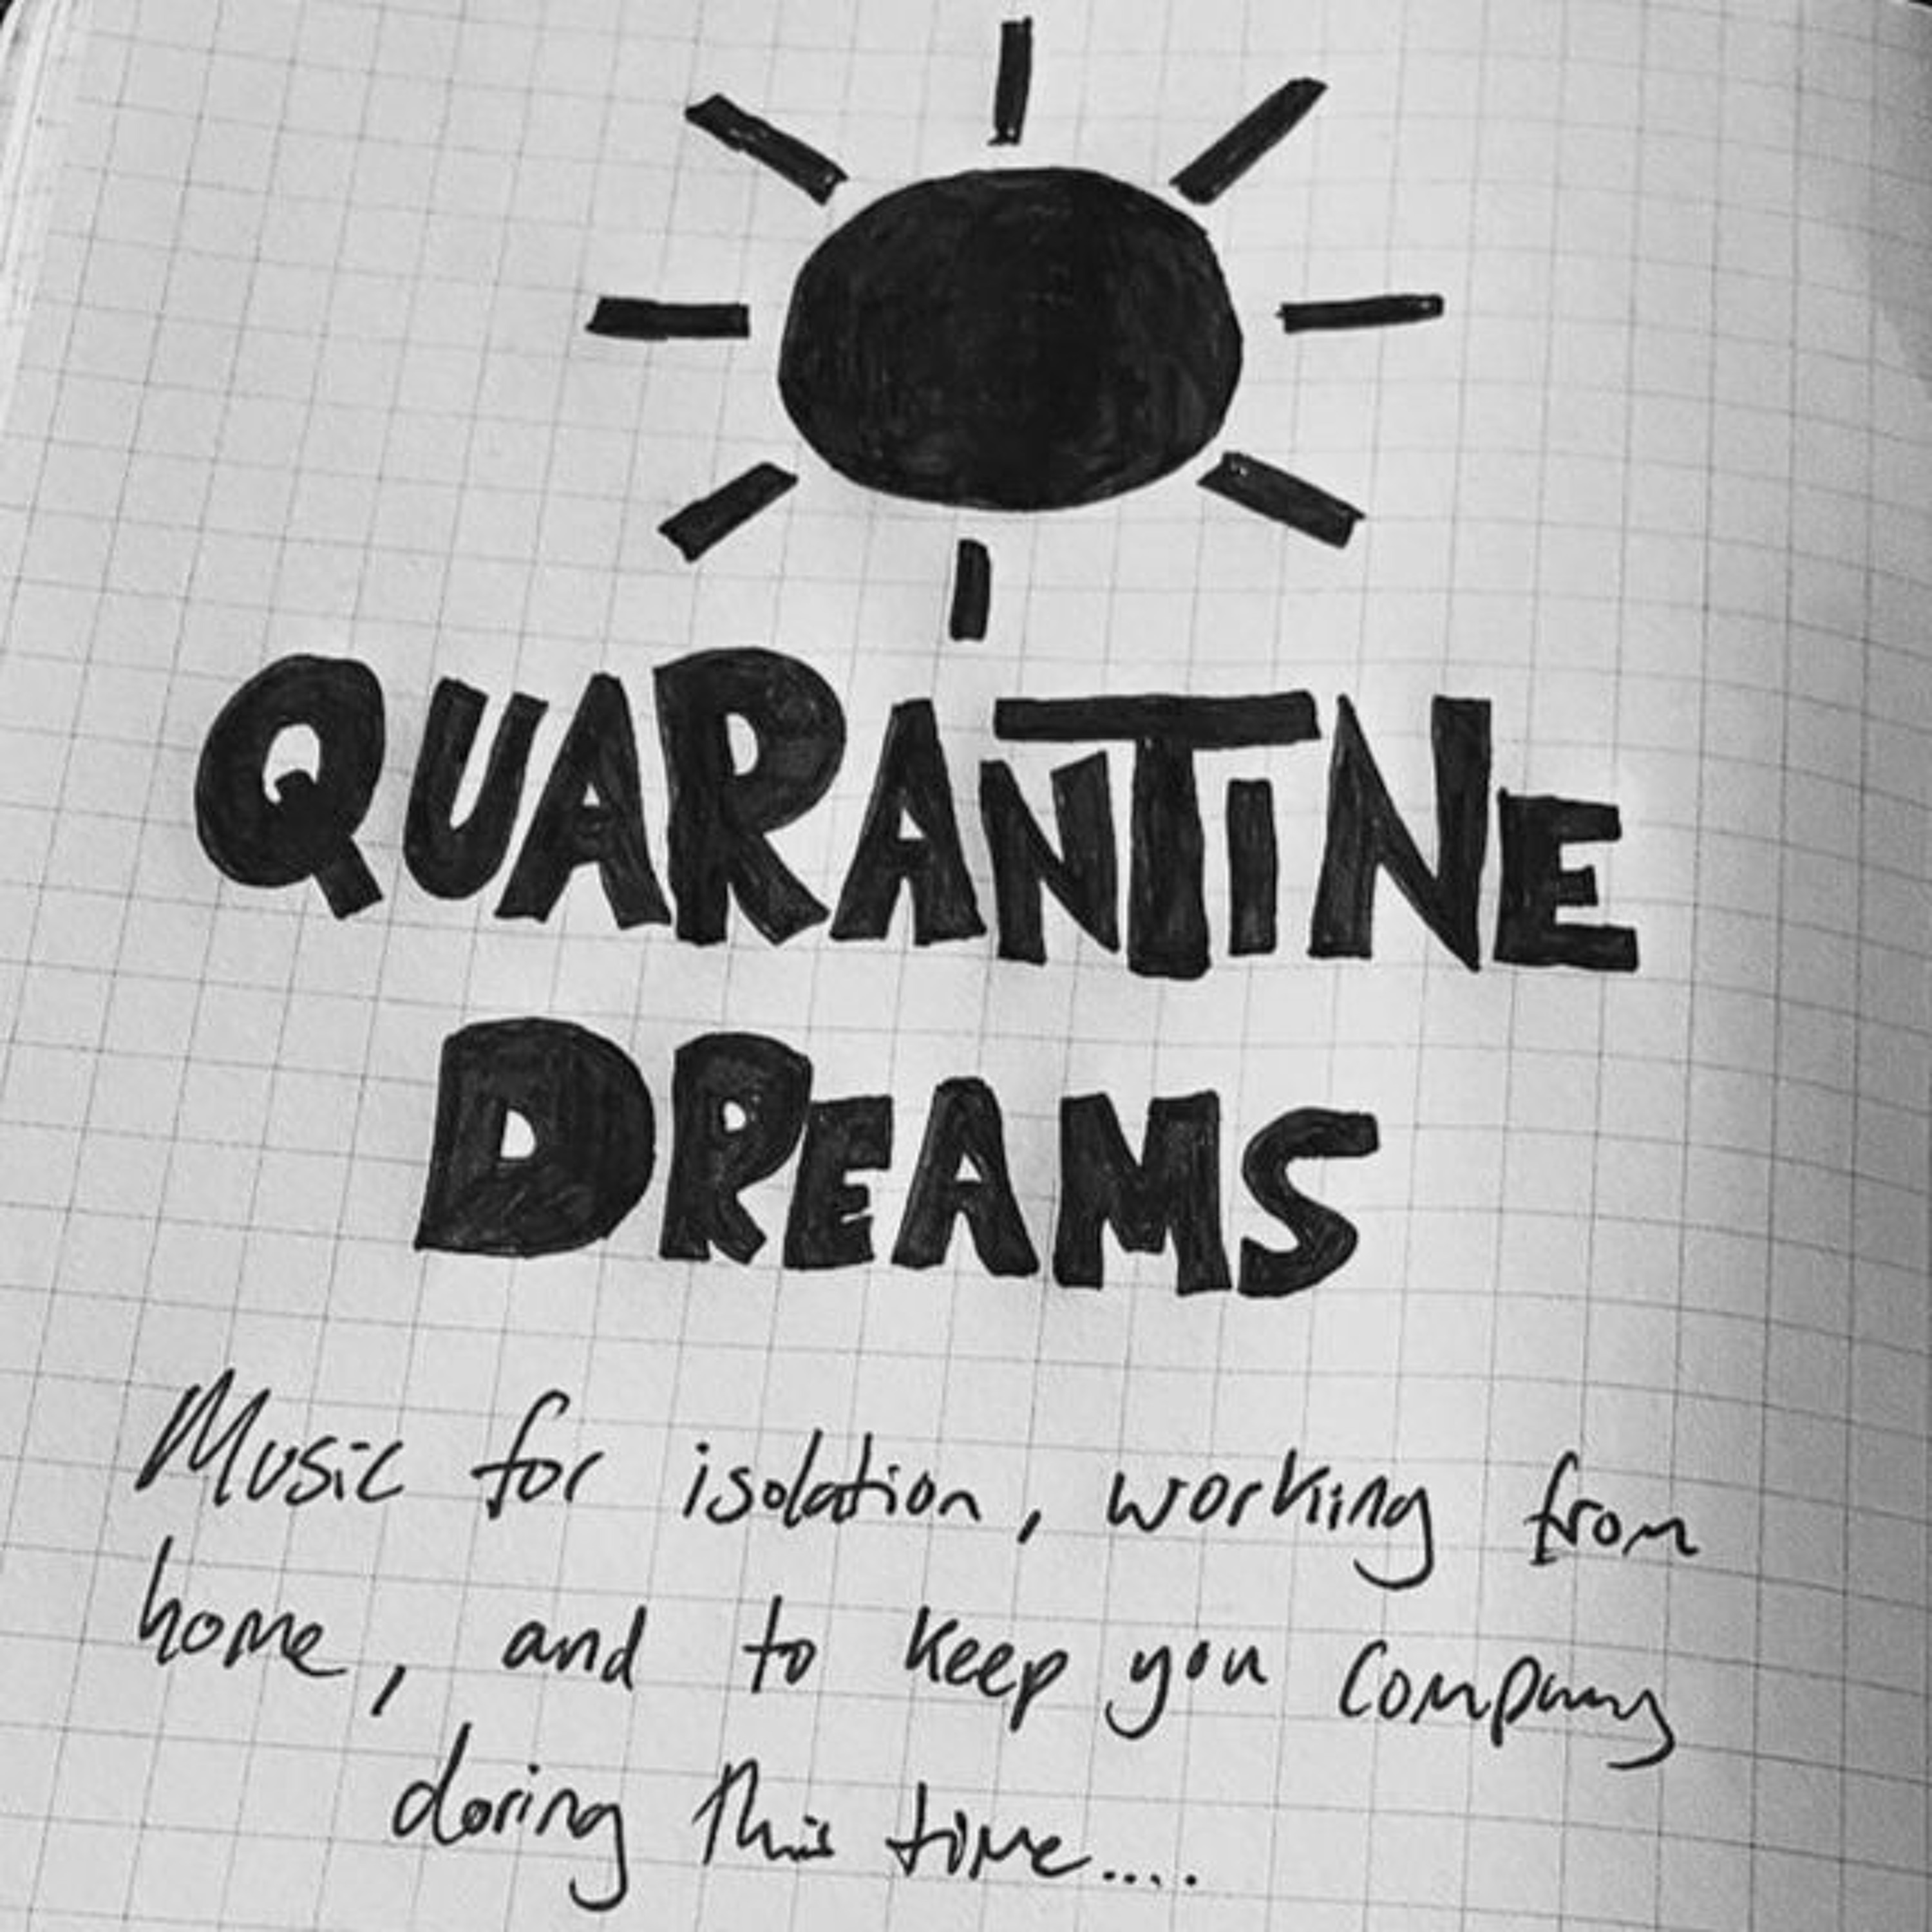 QUARANTINE
DREAMS
Music for isolation, working from
home, and to keep you company
during this time....